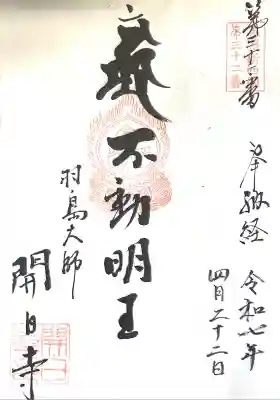 第三十二番
第三十二番
奉納経 令和七年
四月二十二日
不動明王
羽島大師
開日寺